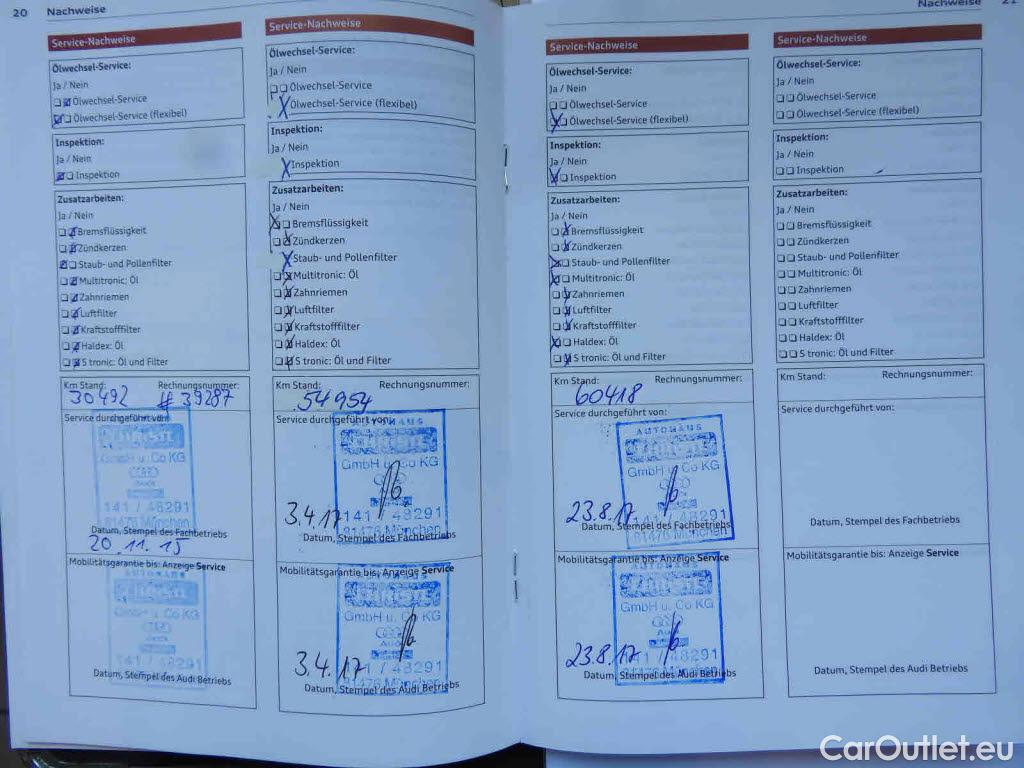 20 Nachweise
Service-Nachweise
Ölwechsel-Service:
Ja / Nein
Ölwechsel-Service
Ölwechsel-Service (flexibel)
Inspektion:
Ja / Nein
Inspektion
Zusatzarbeiten:
Ja / Nein
Bremsflüssigkeit
Zündkerzen
Staub- und Pollenfilter
Multitronic: Öl
Zahnriemen
Luftfilter
Kraftstofffilter
Haldex: Öl
S tronic: Öl und Filter
Km Stand: Rechnungsnummer:
30492 # 39287
Service durchgeführt von:
GmbH u. Co KG
141 / 48291
81476 München
Datum, Stempel des Fachbetriebs
20.11.15
Mobilitätsgarantie bis: Anzeige Service
AUTOHAUS
GmbH u. Co KG
141 / 48291
Datum, Stempel des Audi Betriebs
Service-Nachweise
Ölwechsel-Service:
Ja / Nein
Ölwechsel-Service
Ölwechsel-Service (flexibel)
Inspektion:
Ja / Nein
Inspektion
Zusatzarbeiten:
Ja / Nein
Bremsflüssigkeit
Zündkerzen
Staub- und Pollenfilter
Multitronic: Öl
Zahnriemen
Luftfilter
Kraftstofffilter
Haldex: Öl
S tronic: Öl und Filter
Km Stand: Rechnungsnummer:
54954
Service durchgeführt von:
AUTOHAUS
GmbH u. Co KG
3.4.17
141 / 48291
81476 München
Datum, Stempel des Fachbetriebs
Mobilitätsgarantie bis: Anzeige Service
GmbH u. Co KG
Audi
3.4.17
141 / 48291
81476 München
Datum, Stempel des Audi Betriebs
Nachweise 21
Service-Nachweise
Ölwechsel-Service:
Ja / Nein
Ölwechsel-Service
Ölwechsel-Service (flexibel)
Inspektion:
Ja / Nein
Inspektion
Zusatzarbeiten:
Ja / Nein
Bremsflüssigkeit
Zündkerzen
Staub- und Pollenfilter
Multitronic: Öl
Zahnriemen
Luftfilter
Kraftstofffilter
Haldex: Öl
S tronic: Öl und Filter
Km Stand: Rechnungsnummer:
60418
Service durchgeführt von:
AUTOHAUS
GmbH u. Co KG
23.8.17
141 / 48291
81476 München
Datum, Stempel des Fachbetriebs
Mobilitätsgarantie bis: Anzeige Service
GmbH u. Co KG
Audi
23.8.17
141 / 48291
81476 München
Datum, Stempel des Audi Betriebs
Service-Nachweise
Ölwechsel-Service:
Ja / Nein
Ölwechsel-Service
Ölwechsel-Service (flexibel)
Inspektion:
Ja / Nein
Inspektion
Zusatzarbeiten:
Ja / Nein
Bremsflüssigkeit
Zündkerzen
Staub- und Pollenfilter
Multitronic: Öl
Zahnriemen
Luftfilter
Kraftstofffilter
Haldex: Öl
S tronic: Öl und Filter
Km Stand: Rechnungsnummer:
Service durchgeführt von:
Datum, Stempel des Fachbetriebs
Mobilitätsgarantie bis: Anzeige Service
Datum, Stempel des Audi Betriebs
CarOutlet.eu